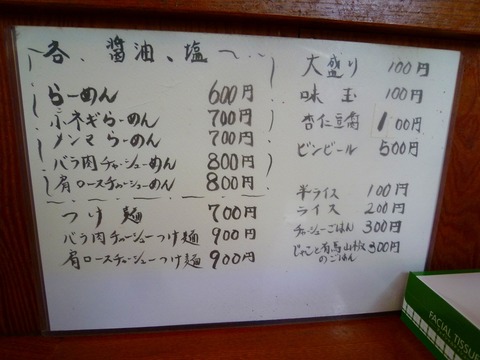 各、醤油、塩
らーめん 600円
ネギらーめん 700円
メンマらーめん 700円
バラ肉チャーシューめん 800円
肩ロースチャーシューめん 800円
つけ麺 700円
バラ肉チャーシューつけ麺 900円
肩ロースチャーシューつけ麺 900円
大盛り 100円
味玉 100円
杏仁豆腐 100円
ビンビール 500円
半ライス 100円
ライス 200円
チャーシューごはん 300円
じゃこと有馬山椒 300円
のごはん
FACIAL TISSUE